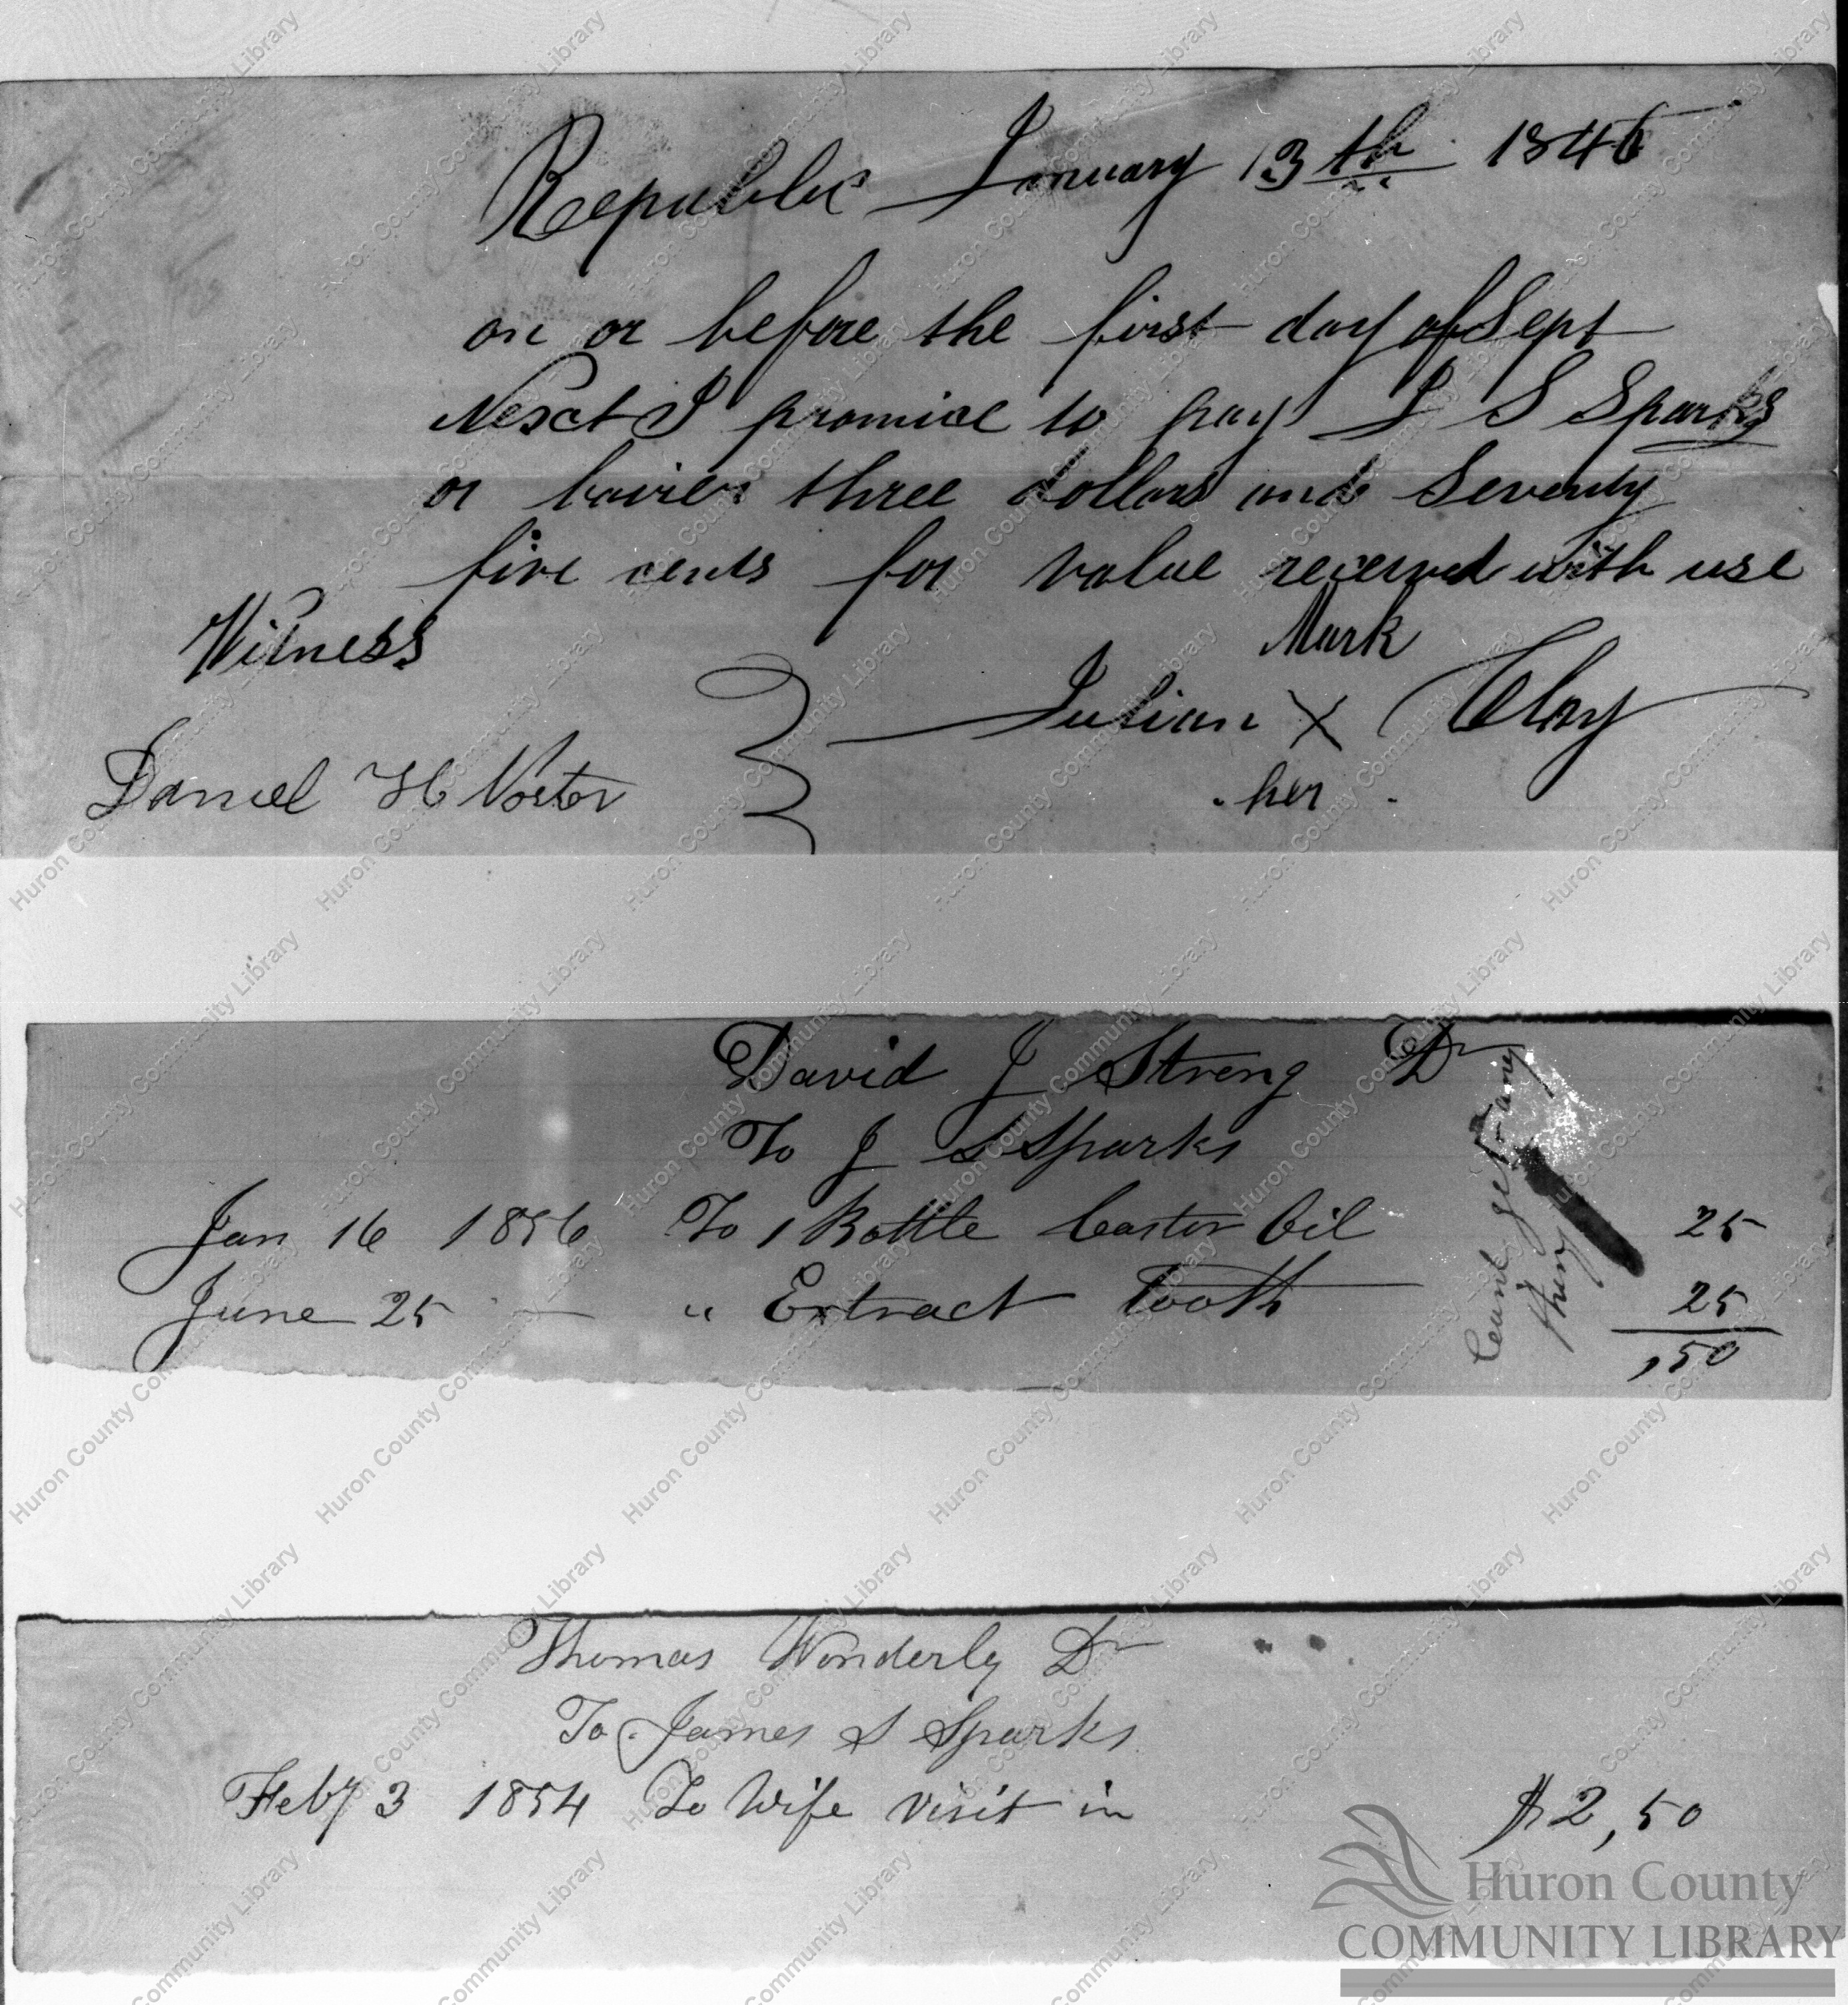 Republic January 13th 1846
on or before the first day of Sept
Nexct I promice to pay J S Sparks
or bairer three dollars and Seventy
five cents for value received with use
Witness
Mark
Julian X Clay
her
Daniel H
David J Streng Dr
To J S Sparks
Jan 16 1856 To 1 Bottle Castor Oil 25
June 25 — " Extract Tooth 25
,50
Cant get any
thing
Thomas Wonderly Dr
To James S Sparks
Feby 3 1854 To Wife visit in $2,50
Huron County
COMMUNITY LIBRARY